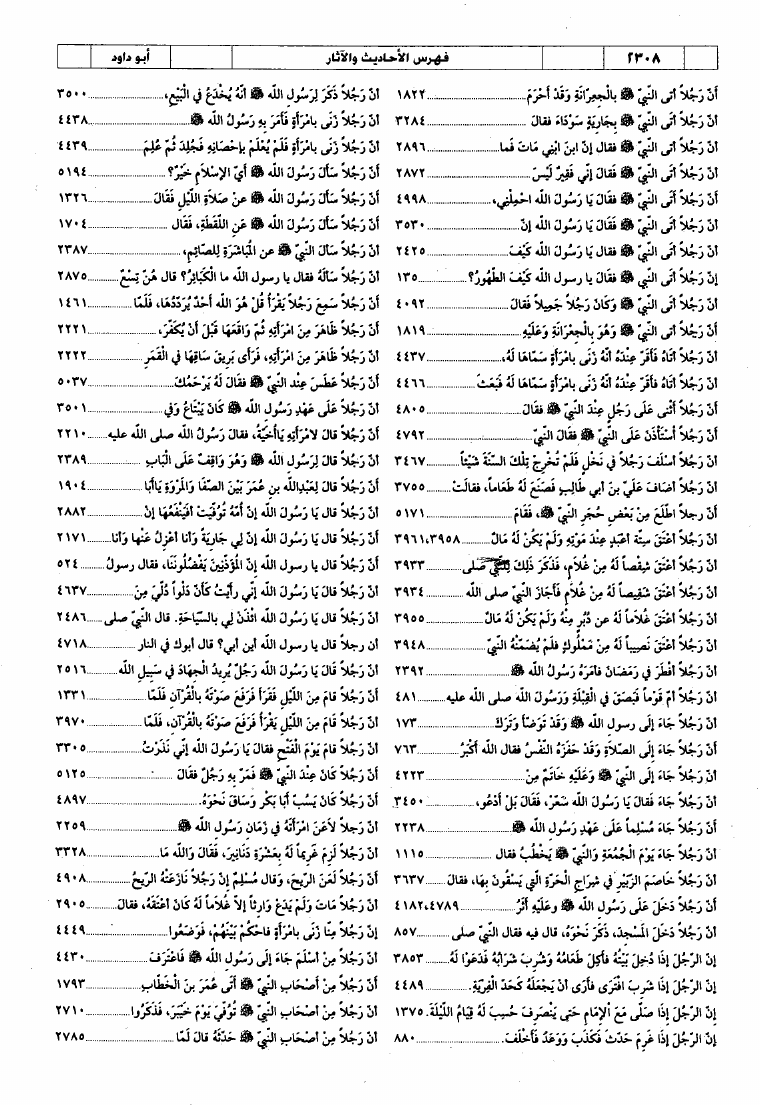 ٢٣٠٨
فهرس الأحاديث والآثار
أبو داود
أَنّ رَجُلاً أتَى النّبيّ ﷺ بالْجِعِرّانَةِ وَقَدْ أَحْرَمَ ١٨٢٢
أَنّ رَجُلاً أتَى النّبيّ ﷺ بِجَارِيَةٍ سَوْدَاءَ فقالَ ٣٢٨٤
أَنّ رَجُلاً أتَى النّبيّ ﷺ فقالَ إنّ ابنَ ابْنِي مَاتَ فَما ٢٨٩٦
أَنّ رَجُلاً أتَى النّبيّ ﷺ فَقَالَ إنّي فَقِيرٌ لَيْسَ ٢٨٧٢
أَنّ رَجُلاً أتَى النّبيّ ﷺ فَقَالَ يَا رَسُولَ الله احْمِلْنِي، ٤٩٩٨
أَنّ رَجُلاً أتَى النّبيّ ﷺ فَقَالَ يَا رَسُولَ الله إنّ ٣٥٣٠
أَنّ رَجُلاً أتَى النّبيّ ﷺ فقال يَا رَسُولَ الله كَيْفَ ٢٤٢٥
إنّ رَجُلاً أتَى النّبيّ ﷺ فَقَالَ يا رسول الله كَيْفَ الطّهُورُ؟ ١٣٥
أَنّ رَجُلاً أتَى النّبيّ ﷺ وَكَانَ رَجُلاً جَمِيلاً فقَالَ ٤٠٩٢
أَنّ رَجُلاً أتَى النّبيّ ﷺ وَهُوَ بِالْجِعْرَانَةِ وَعَلَيْهِ ١٨١٩
أَنّ رَجُلاً أتَاهُ فَأقَرّ عِنْدَهُ أنّهُ زَنَى بامْرَأةٍ سَمّاهَا لَهُ، ٤٤٣٧
أَنّ رَجُلاً أتَاهُ فأقَرّ عِنْدَهُ أنّهُ زَنَى بامْرَأةٍ سَمّاهَا لَهُ فَبَعَثَ ٤٤٦٦
أَنّ رَجُلاً أثْنَى عَلَى رَجُلٍ عِنْدَ النّبيّ ﷺ فقَالَ ٤٨٠٥
أَنّ رَجُلاً اسْتَأْذَنَ عَلَى النّبيّ ﷺ فقَالَ النّبيّ ٤٧٩٢
أَنّ رَجُلاً أسْلَفَ رَجُلاً في نَخْلٍ فَلَمْ تُخْرِجْ تِلْكَ السّنَةَ شَيْئاً ٣٤٦٧
أَنّ رَجُلاً أضَافَ عَلِيّ بنَ أبي طَالِبٍ فَصَنَعَ لَهُ طَعَاماً، فقالَتْ ٣٧٥٥
أَنّ رجلاً اطّلَعَ مِنْ بَعْضِ حُجَرِ النّبيّ ﷺ، فَقَامَ ٥١٧١
أَنّ رَجُلاً أعْتَقَ سِتّةَ أعْبُدٍ عِنْدَ مَوْتِهِ وَلَمْ يَكُنْ لَهُ مَالٌ ٣٩٥٨،٣٩٦١
أَنّ رَجُلاً أعْتَقَ شِقْصاً لَهُ مِنْ غُلَامٍ، فَذَكَرَ ذَلِكَ لِلنّبيّ صلى ٣٩٣٣
أَنّ رَجُلاً أعْتَقَ شَقِيصاً لَهُ مِنْ غُلَامٍ فَأجَازَ النّبيّ صلى الله ٣٩٣٤
أَنّ رَجُلاً أعْتَقَ غُلَاماً لَهُ عن دُبُرٍ مِنْهُ وَلَمْ يَكُنْ لَهُ مَالٌ ٣٩٥٥
أَنّ رَجُلاً أعْتَقَ نَصِيباً لَهُ مِنْ مَمْلُوكٍ فلَمْ يُضَمّنْهُ النّبيّ ٣٩٤٨
أَنّ رَجُلاً أفْطَرَ في رَمَضَانَ فأمَرَهُ رَسُولُ الله ﷺ ٢٣٩٢
أَنّ رَجُلاً أمّ قَوْماً فَبَصَقَ في الْقِبْلَةِ وَرَسُولُ الله صلى الله عليه ٤٨١
أَنّ رَجُلاً جَاءَ إلَى رسول الله ﷺ وَقَدْ تَوَضّأ وَتَرَكَ ١٧٣
أَنّ رَجُلاً جَاءَ إلَى الصّلَاةِ وَقَدْ حَفَزَهُ النّفَسُ فقال الله أكْبَرُ ٧٦٣
أَنّ رَجُلاً جَاءَ إلَى النّبيّ ﷺ وَعَلَيْهِ خَاتَمٌ مِنْ ٤٢٢٣
أَنّ رَجُلاً جَاءَ فَقَالَ يَا رَسُولَ الله سَعّرْ، فَقَالَ بَلْ أدْعُو، ٣٤٥٠
أَنّ رَجُلاً جَاءَ مُسْلِماً عَلَى عَهْدِ رَسُولِ الله ﷺ ٢٢٣٨
أَنّ رَجُلاً جَاءَ يَوْمَ الْجُمُعَةِ وَالنّبيّ ﷺ يَخْطُبُ فقال ١١١٥
أَنّ رَجُلاً خَاصَمَ الزّبَيْرَ في شِرَاجِ الْحَرّةِ الّتي يَسْقُونَ بِهَا، فقالَ ٣٦٣٧
أَنّ رَجُلاً دَخَلَ عَلَى رَسُولِ الله ﷺ وعلَيْهِ أثَرُ ٤١٨٢،٤٧٨٩
أَنّ رَجُلاً دَخَلَ المَسْجِدَ، ذَكَرَ نَحْوَهُ، قال فيه فقال النّبيّ صلى ٨٥٧
إنّ الرّجُلَ إذَا دُخِلَ بَيْتُهُ فأُكِلَ طَعَامُهُ وَشُرِبَ شَرَابُهُ فَدَعَوْا لَهُ ٣٨٥٣
إنّ الرّجُلَ إذَا شَرِبَ افْتَرَى فأرَى أنْ يَجْعَلَهُ كَحَدّ الْفِرْيَةِ. ٤٤٨٩
إنّ الرّجُلَ إذَا صَلّى مَعَ الإمَامِ حتى يَنْصَرِفَ حُسِبَ لَهُ قِيَامُ اللّيْلَةِ. ١٣٧٥
إنّ الرّجُلَ إذَا غَرِمَ حَدّثَ فَكَذَبَ وَوَعَدَ فَأخْلَفَ. ٨٨٠
أنّ رَجُلاً ذَكَرَ لِرَسُولِ الله ﷺ أنّهُ يُخْدَعُ في الْبَيْعِ، ٣٥٠٠
أَنّ رَجُلاً زَنَى بامْرَأةٍ فَأمَرَ بِهِ رَسُولُ الله ﷺ ٤٤٣٨
أَنّ رَجُلاً زَنَى بامْرَأةٍ فَلَمْ يُعْلَمْ بإحْصَانِهِ فَجُلِدَ ثُمّ عُلِمَ ٤٤٣٩
أَنّ رَجُلاً سَألَ رَسُولَ الله ﷺ أيّ الإسْلَامِ خَيْرٌ؟ ٥١٩٤
أَنّ رَجُلاً سَألَ رَسُولَ الله ﷺ عنْ صَلَاةِ اللّيْلِ فَقَالَ ١٣٢٦
أَنّ رَجُلاً سَألَ رَسُولَ الله ﷺ عَنِ اللّقَطَةِ، فَقَال ١٧٠٤
أَنّ رَجُلاً سَألَ النّبيّ ﷺ عن المُبَاشَرَةِ لِلصّائِمِ، ٢٣٨٧
أَنّ رَجُلاً سَألَهُ فقال يا رسول الله ما الْكَبَائِرُ؟ قال هُنّ تِسْعٌ ٢٨٧٥
أَنّ رَجُلاً سَمِعَ رَجُلاً يَقْرَأُ قُلْ هُوَ الله أحَدٌ يُرَدّدُهَا، فَلَمّا ١٤٦١
أَنّ رَجُلاً ظَاهَرَ مِنَ امْرَأتِهِ ثُمّ وَاقَعَهَا قَبْلَ أنْ يُكَفّرَ، ٢٢٢١
أَنّ رَجُلاً ظَاهَرَ مِنَ امْرَأتِهِ، فَرَأى بَرِيقَ سَاقِهَا في الْقَمَرِ ٢٢٢٢
أَنّ رَجُلاً عَطَسَ عِنْد النّبيّ ﷺ فقالَ لَهُ يَرْحَمُكَ ٥٠٣٧
أَنّ رَجُلاً عَلَى عَهْدِ رَسُولِ الله ﷺ كَانَ يَبْتَاعُ وَفي ٣٥٠١
أَنّ رَجُلاً قالَ لامْرَأتِهِ يَاأُخَيّةُ، فقالَ رَسُولُ الله صلى الله عليه ٢٢١٠
أَنّ رَجُلاً قالَ لِرَسُولِ الله ﷺ وَهُوَ وَاقِفٌ عَلَى الْبَابِ ٢٣٨٩
أَنّ رَجُلاً قالَ لِعَبْدِالله بنِ عُمَرَ بَيْنَ الصّفَا وَالمَرْوَةِ يَاأبَا ١٩٠٤
أَنّ رَجُلاً قالَ يَا رَسُولَ الله إنّ أُمّهُ تُوُفّيَتْ أفَيَنْفَعُهَا إنْ ٢٨٨٢
أَنّ رَجُلاً قال يَا رَسُولَ الله إنّ لِي جَارِيَةً وَأنا أعْزِلُ عَنْهَا وَأنا ٢١٧١
أَنّ رَجُلاً قال يا رسول الله إنّ المُؤَذّنِينَ يَفْضُلُونَنَا، فقال رسولُ ٥٢٤
أَنّ رَجُلاً قالَ يَا رَسُولَ الله إنّي رَأيْتُ كَأنّ دَلْواً دُلّيَ مِنَ ٤٦٣٧
أَنّ رَجُلاً قال يَا رَسُولَ الله ائْذَنْ لِي بالسّيَاحَةِ. قال النّبيّ صلى ٢٤٨٦
أن رجلاً قال يا رسول الله أين أبي؟ قال أبوك في النار ٤٧١٨
أَنّ رَجُلاً قَالَ يَا رَسُولَ الله رَجُلٌ يُرِيدُ الْجِهَادَ في سَبِيلِ الله ٢٥١٦
أَنّ رَجُلاً قامَ مِنَ اللّيْلِ فَقَرَأ فَرَفَعَ صَوْتَهُ بالْقُرْآنِ فَلَمّا ١٣٣١
أَنّ رَجُلاً قَامَ مِنَ اللّيْلِ يَقْرَأُ فَرَفَعَ صَوْتَهُ بالْقُرْآنِ، فَلَمّا ٣٩٧٠
أَنّ رَجُلاً قامَ يَوْمَ الْفَتْحِ فقالَ يَا رَسُولَ الله إنّي نَذَرْتُ ٣٣٠٥
أَنّ رَجُلاً كَانَ عِنْدَ النّبيّ ﷺ فَمَرّ بِهِ رَجُلٌ فقَالَ ٥١٢٥
أَنّ رَجُلاً كَانَ يَسُبّ أبَا بَكْرٍ وَسَاقَ نَحْوَهُ. ٤٨٩٧
أَنّ رَجلاً لَاعَنَ امْرَأتَهُ في زَمَانِ رَسُولِ الله ﷺ ٢٢٥٩
أَنّ رَجُلاً لَزِمَ غَرِيماً لَهُ بِعَشْرَةِ دَنَانِيرَ، فَقَالَ وَالله مَا ٣٣٢٨
أَنّ رَجُلاً لَعَنَ الرّيحَ، وَقال مُسْلِمٌ إنّ رَجُلاً نَازَعَتْهُ الرّيحُ ٤٩٠٨
أَنّ رَجُلاً مَاتَ وَلَمْ يَدَعْ وَارِثاً إلاّ غُلَاماً لَهُ كَانَ أعْتَقَهُ، فقالَ ٢٩٠٥
إنّ رَجُلاً مِنّا زَنَى بامْرَأةٍ فاحْكُمْ بَيْنَهُمْ، فَوَضَعُوا ٤٤٤٩
أَنّ رَجُلاً مِنْ أسْلَمَ جَاءَ إلَى رَسُولِ الله ﷺ فَاعْتَرَفَ ٤٤٣٠
أَنّ رَجُلاً مِنْ أصْحَابِ النّبيّ ﷺ أتَى عُمَرَ بنَ الْخَطّابِ ١٧٩٣
أَنّ رَجُلاً مِنْ أصْحَابِ النّبيّ ﷺ تُوُفّيَ يَوْمَ خَيْبَرَ، فَذَكَرُوا ٢٧١٠
أَنّ رَجُلاً مِنْ أصْحَابِ النّبيّ ﷺ حَدّثَهُ قالَ لَمّا ٢٧٨٥